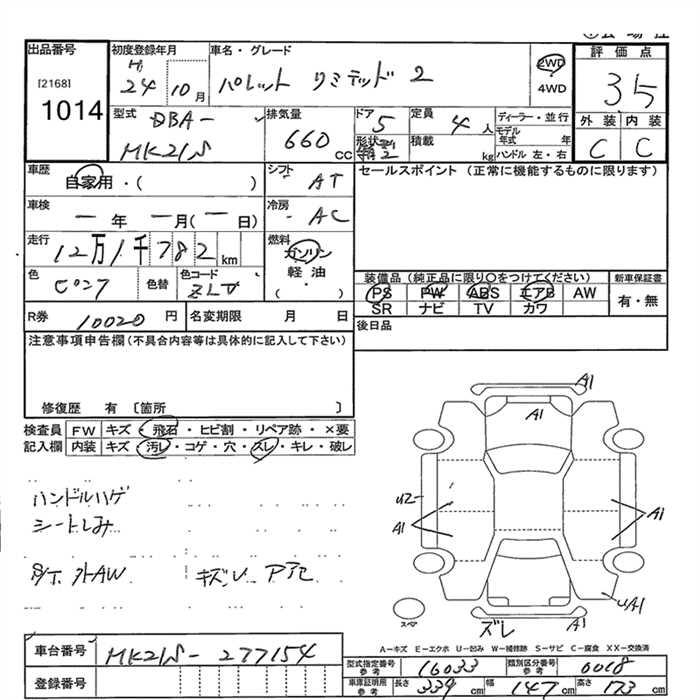 出品番号
[2168]
1014
初度登録年月
H
24 10月
車名・グレード
パレット リミテッド 2
2WD
4WD
評価点
3.5
型式
DBA-
MK21S
排気量
660
cc
ドア 5
形状
定員 4 人
積載 kg
ディーラー・並行
モデル年式 年
ハンドル 左・右
外装 内装
C C
車歴
自家用・( )
シフト AT
車検
ー 年 ー 月(ー 日)
冷房 AC
走行
12万1千782 km
燃料
ガソリン
軽油
( ・ )
色
ピンク
色替
色コード
ZLV
R券 10020 円
名変期限 月 日
セールスポイント (正常に機能するものに限ります)
装備品(純正品に限り○をつけてください)
PS PW ABS エアB AW
SR ナビ TV カワ
新車保証書
有・無
後日品
注意事項申告欄(不具合内容等は具体的に記入して下さい)
修復歴 有 〔箇所 〕
検査員 FW キズ・飛石・ヒビ割・リペア跡・×要
記入欄 内装 キズ・汚レ・コゲ・穴・スレ・キレ・破レ
ハンドルハゲ
シートしみ
S/T 外AW キズU
A1
A1
U2
A1
A1
U/A1
スペア
ズレ
A1
A-キズ E-エクボ U-凹み W-補修跡 S-サビ C-腐食 XX-交換済
車台番号 MK21S-277154
登録番号
型式指定番号 参考 16033
類別区分番号 参考 0018
車庫証明用 参考 長さ 339 cm 幅 147 cm 高さ 173 cm